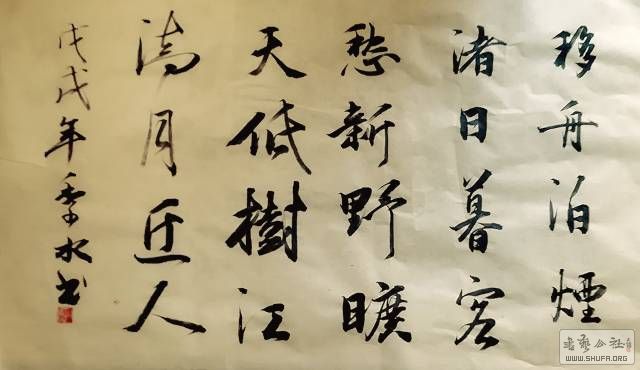 移舟泊煙
渚日暮客
愁新野曠
天低樹江
清月近人
戊戌年季水书
书艺公社
WWW.SHUFA.ORG